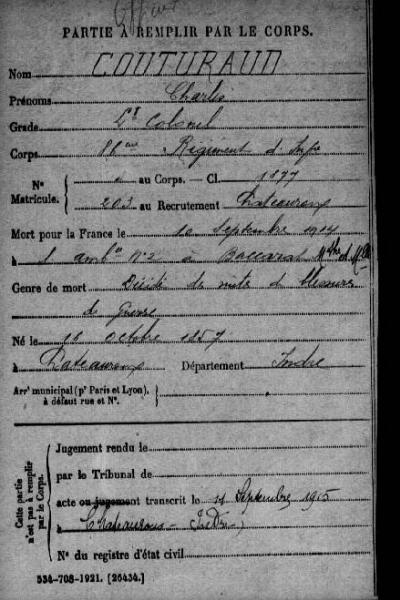 PARTIE À REMPLIR PAR LE CORPS.
Nom COUTURAUD
Prénoms Charles
Grade Lt Colonel
Corps 88eme Régiment d'Infie
N° Matricule. { " au Corps. — Cl. 1877
203 au Recrutement Chateauroux
Mort pour la France le 10 Septembre 1914
à l'amb N°2 à Baccarat Mthe et Mlle
Genre de mort Décédé des suites de blessures
de Guerre
Né le 18 octobre 1857
à Chateauroux Département Indre
Arrt municipal (pr Paris et Lyon),
à défaut rue et N°.
Cette partie n'est pas à remplir par le Corps.
Jugement rendu le
par le Tribunal de
acte ou jugement transcrit le Septembre 1915
à Chateauroux - (Indre)
N° du registre d'état civil
534-708-1921. [26434.]